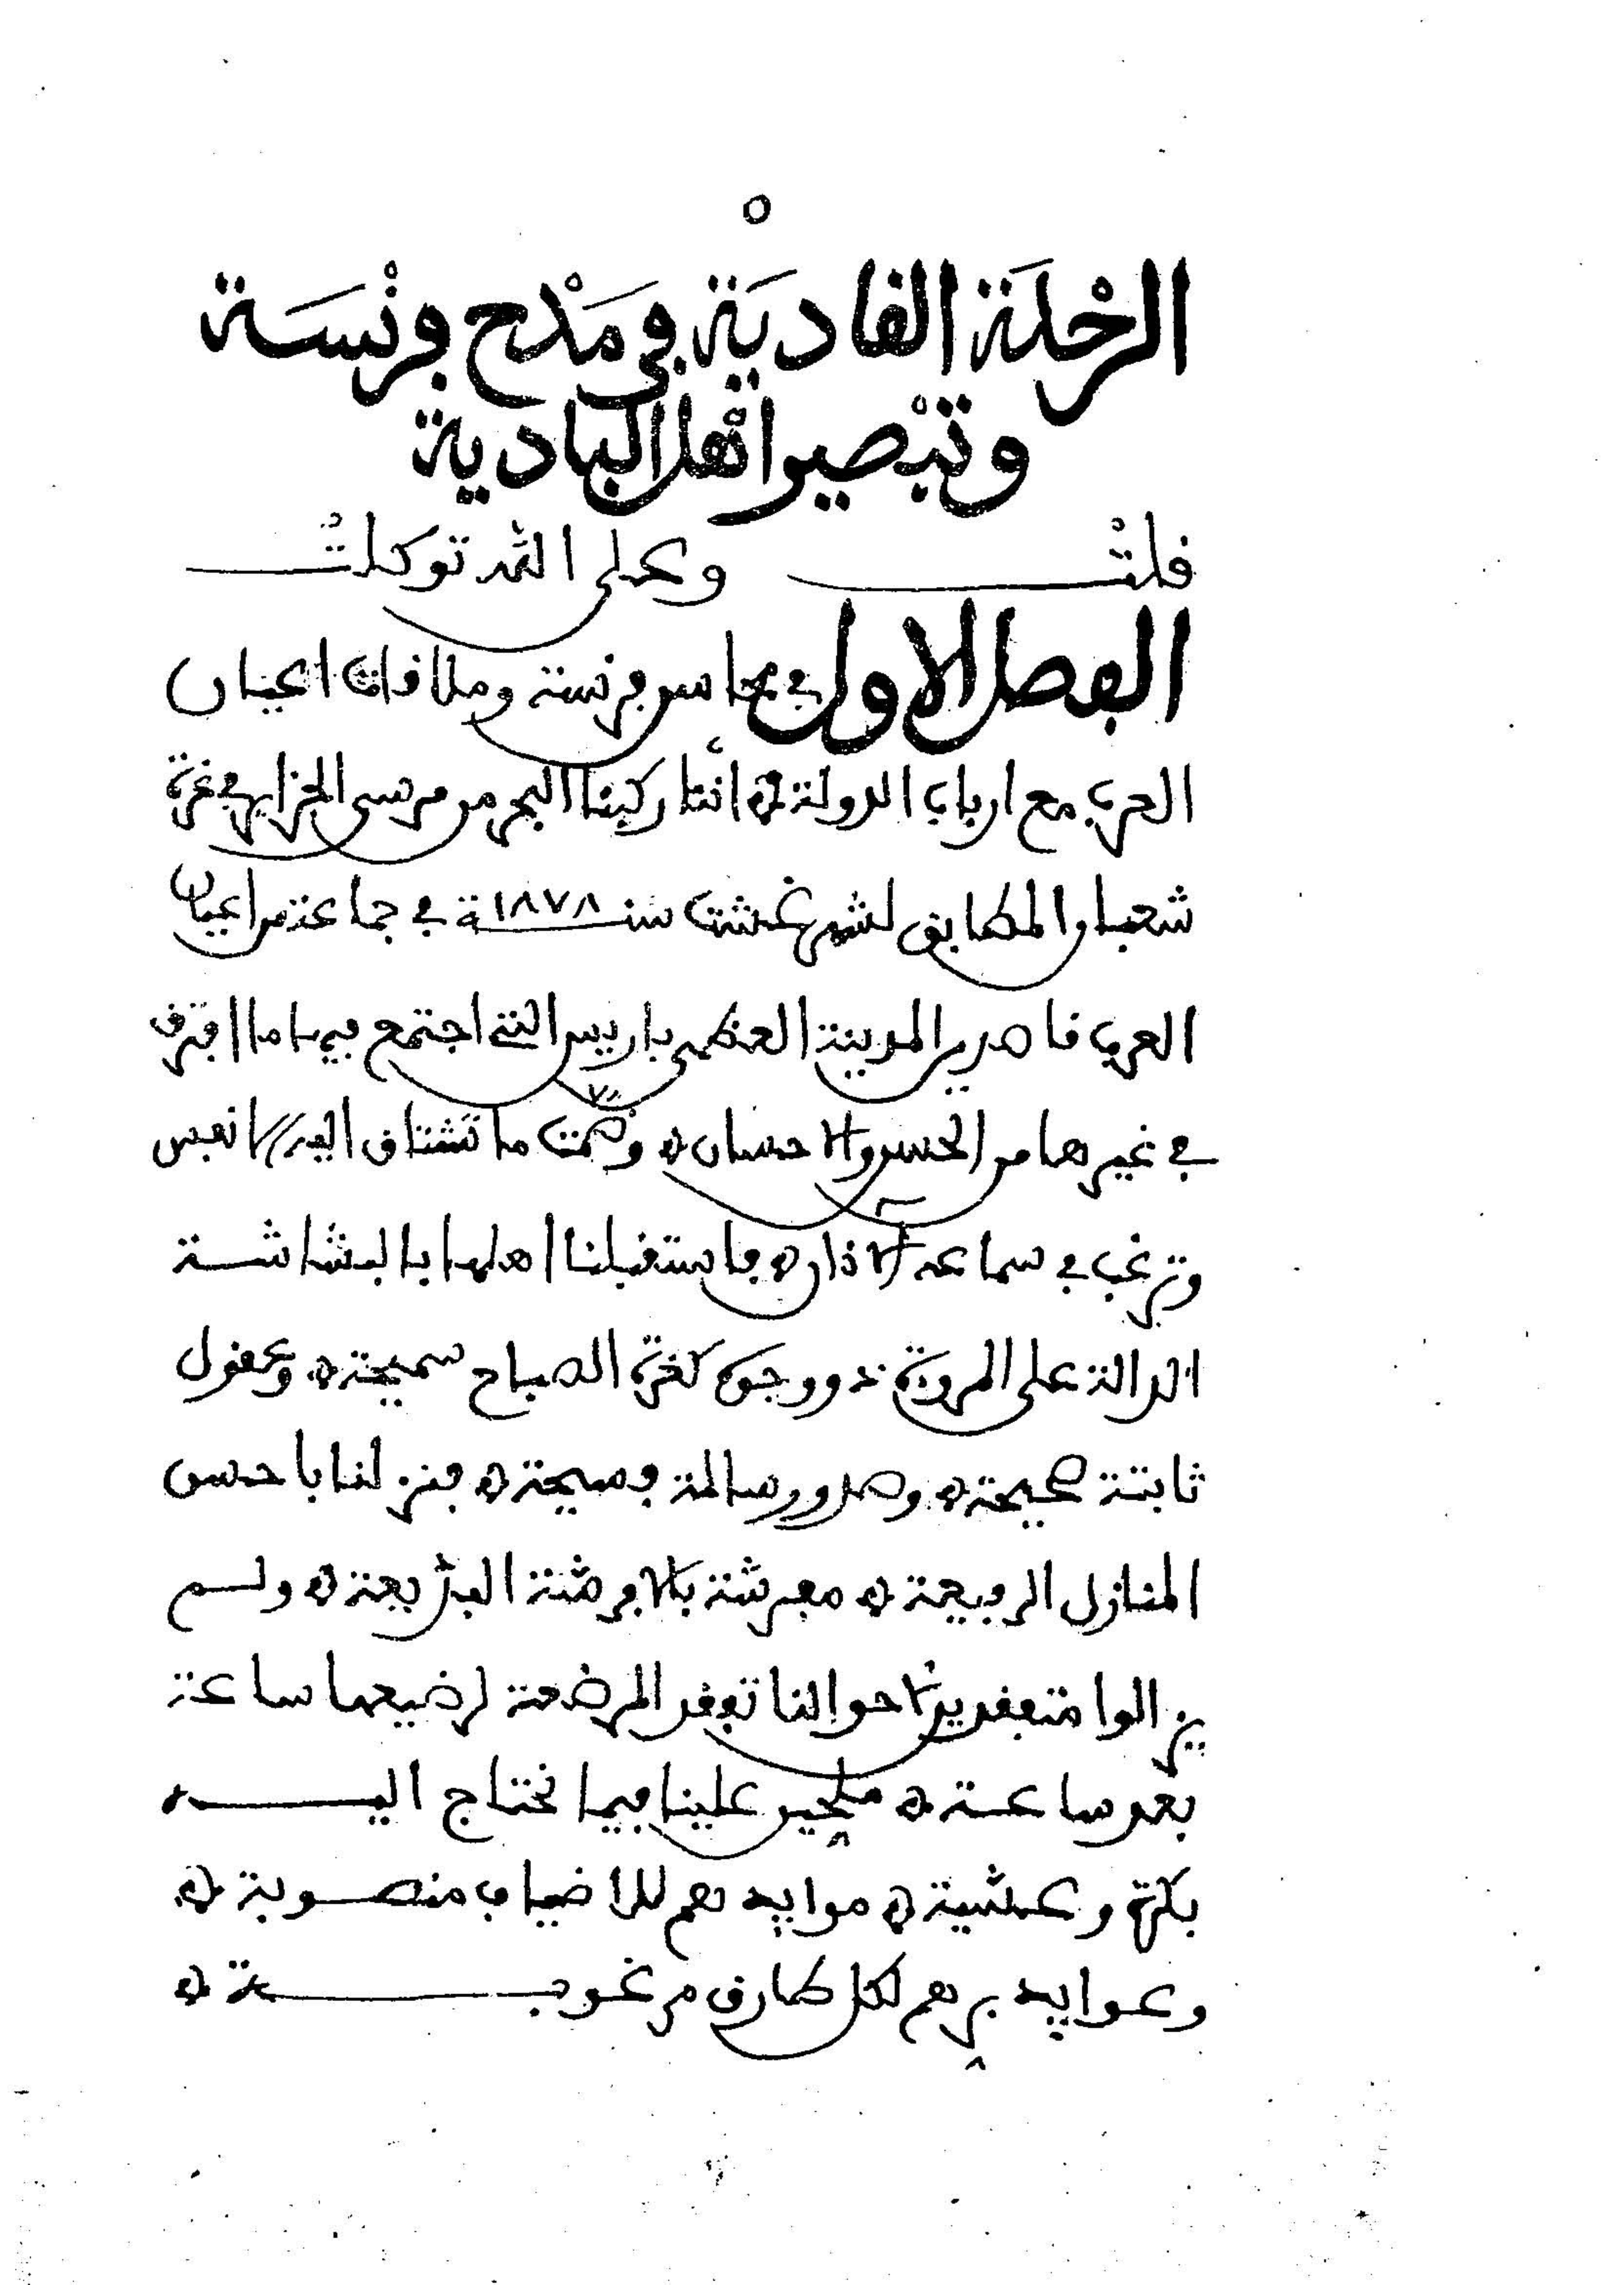 ٥
الرحْلَة القاديَة في مَدْح فرنْسَة
وتبْصير اهْل البادية
قلتْ وعلى الله توكلتْ
الفصل الاول في محاسن فرنسة وملاقات اعيان
العرب مع ارباب الدولة ۞ أننا ركبنا البحر من مرسى الجزاير في غرة
شعبان المطابق لشهر غشت سنة ١٨٧٨ في جماعة من اعيان
العرب قاصدين المدينة العظمى باريس التي اجتمع فيها ما افترق
في غيرها من الحسن والاحسان ۞ وضمت ما تشتاق اليه الانفس
وترغب في سماعه الآذان ۞ فاستقبلنا اهلها بالبشاشة
الدالة على المروة ذوو وجوه كغرة الصباح سميحة ۞ وعقول
ثابتة صحيحة ۞ وصدور سالمة فسيحة ۞ فنزلنا باحسن
المنازل الرفيعة ۞ مفرشة بالافرشة البديعة ۞ ولم
يزالوا متفقدين لاحوالنا تفقد المرضعة لرضيعها ساعة
بعد ساعة ۞ ملحين علينا فيما نحتاج اليه
بكرة وعشية ۞ موايدهم للاضياف منصوبة ۞
وعوايد برهم لكل طارق مرغوبة ۞